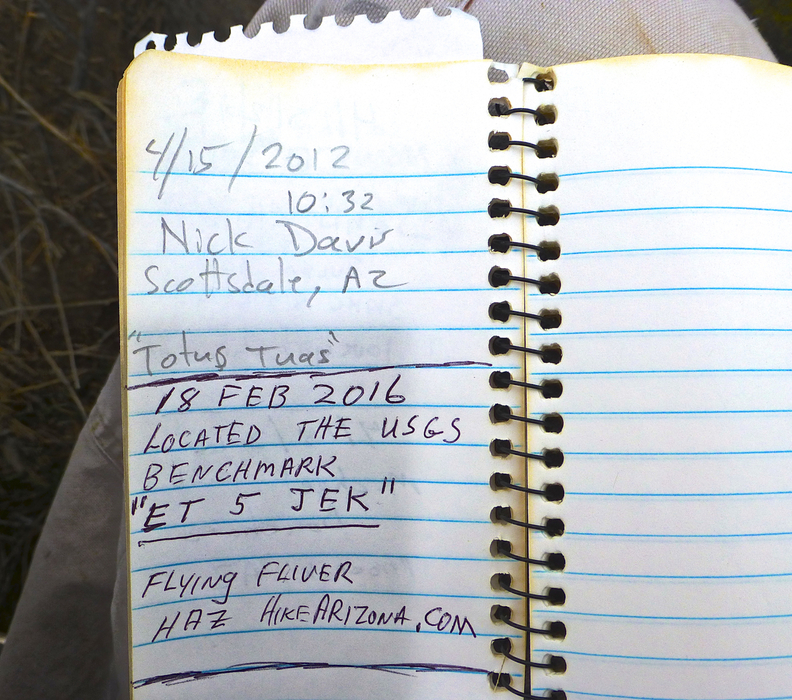 4/15/2012
10:32
Nick Davis
Scottsdale, AZ
"Totus Tuus"
18 FEB 2016
LOCATED THE USGS
BENCHMARK
"ET 5 JEK"
FLYING FLIVER
HAZ HIKEARIZONA.COM